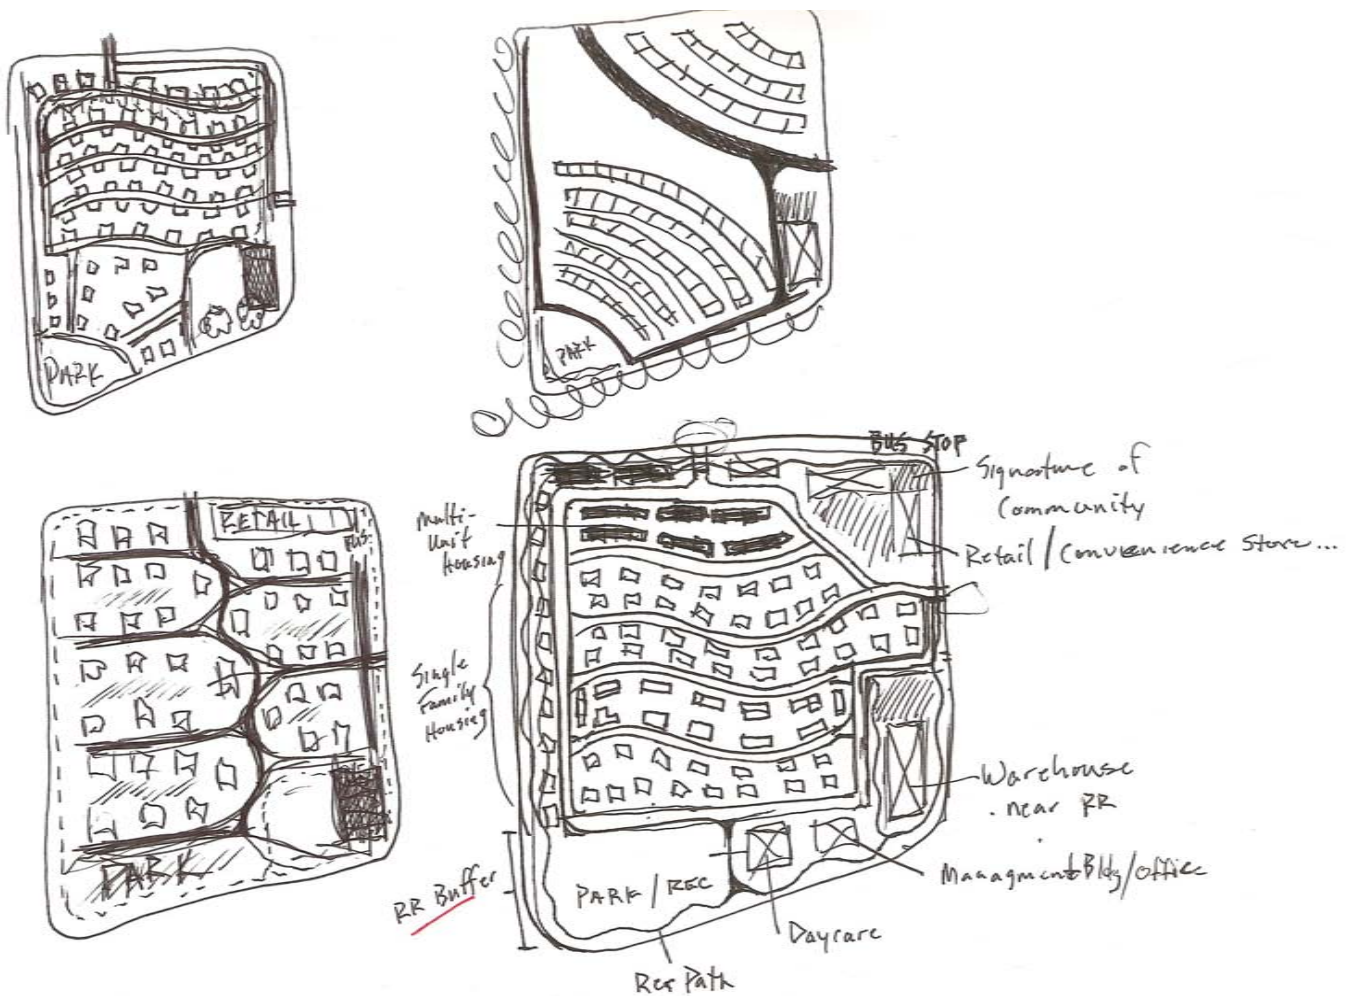 PARK
PARK
RETAIL
BUS
PARK
BUS STOP
Signature of
Community
Retail / Convenience Store...
Multi-
Unit
Housing
Single
Family
Housing
RR Buffer
PARK / REC
Warehouse
near RR
ManagmentBldg/office
Daycare
Rec Path